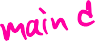 main d